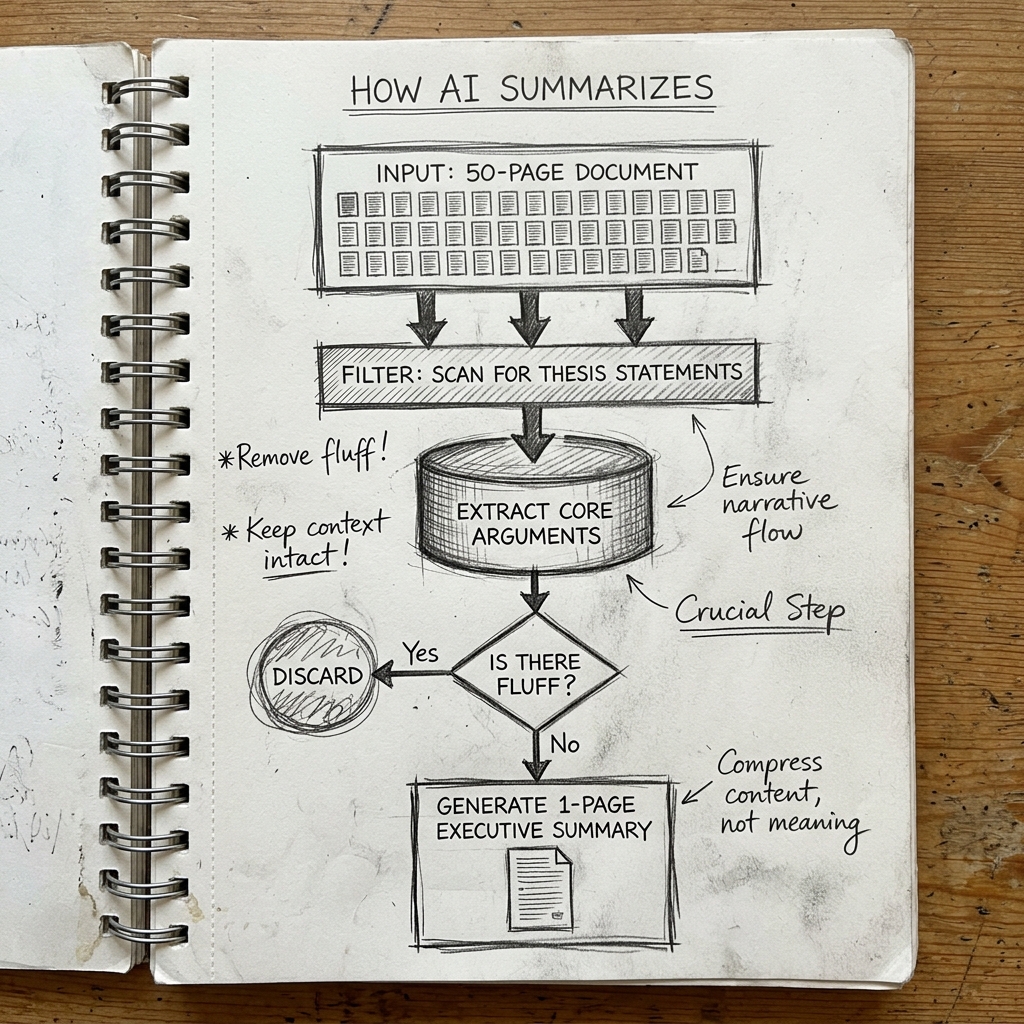 HOW AI SUMMARIZES
INPUT: 50-PAGE DOCUMENT
FILTER: SCAN FOR THESIS STATEMENTS
*Remove fluff!
* Keep context
intact!
EXTRACT CORE
ARGUMENTS
Ensure
narrative
flow
Crucial Step
IS THERE
FLUFF?
Yes
DISCARD
No
GENERATE 1-PAGE
EXECUTIVE SUMMARY
Compress
content,
not meaning